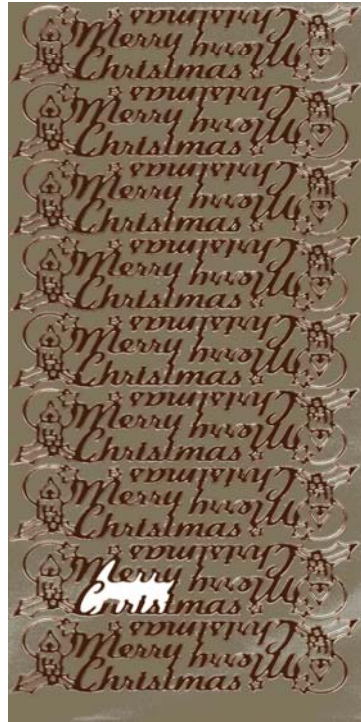 Merry
Christmas
Merry
Christmas
Merry
Christmas
Merry
Christmas
Merry
Christmas
Merry
Christmas
Merry
Christmas
Merry
Christmas
Merry
Christmas
Merry
Christmas
Merry
Christmas
Merry
Christmas
Merry
Christmas
Merry
Christmas
Merry
Christmas
Merry
Christmas
Merry
Christmas
Merry
Christmas